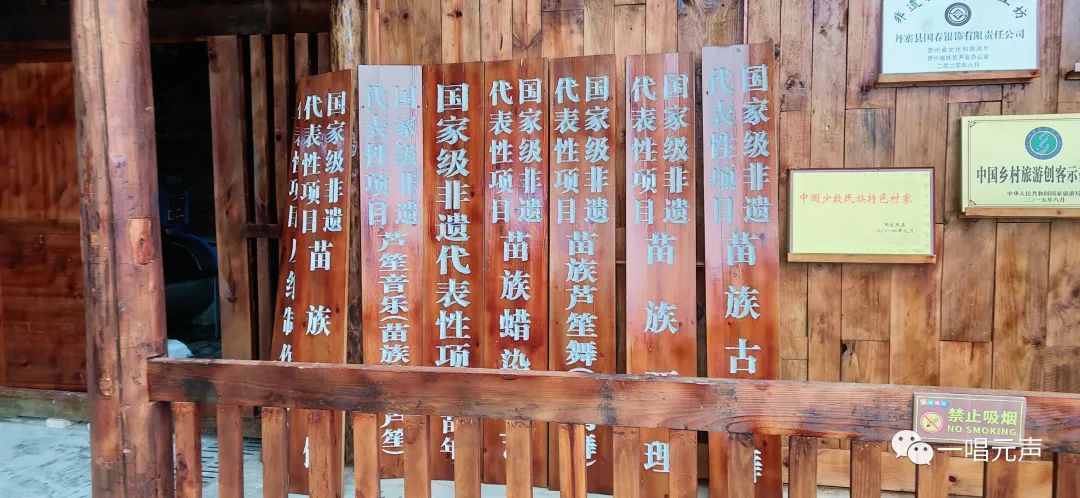 国家级非遗
代表性项目 苗族
国家级非遗
代表性项目 芦笙音乐(苗族芦笙)
国家级非遗代表性项
苗年
国家级非遗
代表性项目 苗族蜡染
国家级非遗
代表性项目 苗族芦笙舞(
国家级非遗
代表性项目 苗族 理
国家级非遗
代表性项目 苗族古
丹寨县国春银饰有限责任公司
贵州省文化和旅游厅
贵州省扶贫开发办公室
二〇二〇年六月
中国少数民族特色村寨
中国乡村旅游创客示
中华人民共和国国家旅游局
二〇一五年八月
禁止吸烟
NO SMOKING
一唱元声